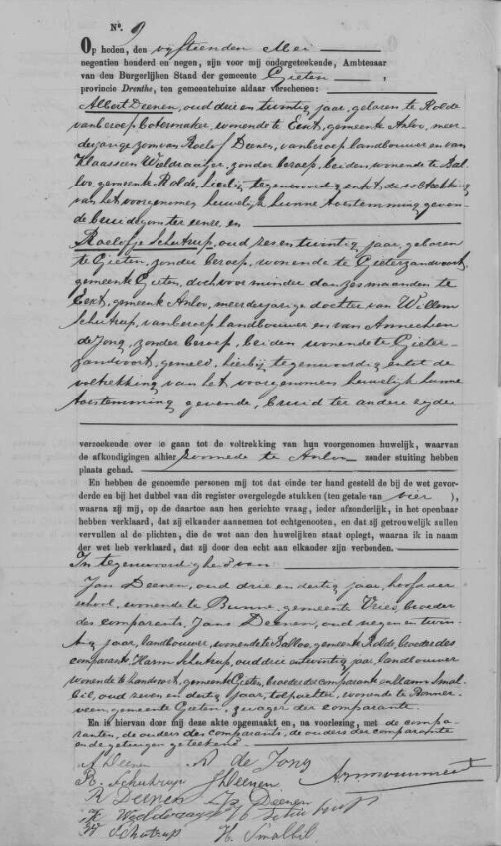 No. 9
Op heden, den vijftienden Mei
negentien honderd en negen, zijn voor mij ondergeteekende, Ambtenaar
van den Burgerlijken Stand der gemeente Gieten,
provincie Drenthe, ten gemeentehuize aldaar verschenen:
Albert Deenen, oud drie en twintig jaar, geboren te Rolde
van beroep botermaker, wonende te Eext, gemeente Anloo, meer-
derjarige zoon van Roelof Deenen, van beroep landbouwer en van
Klaassien zonder beroep, beiden wonende te Bal-
loo, gemeente Rolde, hierbij tegenwoordig en tot de voltrekking
van het voorgenomen huwelijk hunne toestemming geven-
de bruidegom ter eenre, en
Roelofje Schutrup, oud zes en twintig jaar, geboren
te Gieten, zonder beroep, wonende te Gieterzandvoort,
gemeente Gieten, doch voor minder dan zes maanden te
Eext, gemeente Anloo, meerderjarige dochter van Willem
Schutrup, van beroep landbouwer en van Annechien
de Jong, zonder beroep, beiden wonende te Gieter-
zandvoort, gemeld, hierbij tegenwoordig en tot de
voltrekking van het voorgenomen huwelijk hunne
toestemming gevende, bruid ter andere zijde
verzoekende over te gaan tot de voltrekking van hun voorgenomen huwelijk, waarvan
de afkondigingen alhier zoomede te Anloo zonder stuiting hebben
plaats gehad.
En hebben de genoemde personen mij tot dat einde ter hand gesteld de bij de wet gevor-
derde en bij het dubbel van dit register overgelegde stukken (ten getale van vier),
waarna zij mij, op de daartoe aan hen gerichte vraag, ieder afzonderlijk, in het openbaar
hebben verklaard, dat zij elkander aannemen tot echtgenooten, en dat zij getrouwelijk zullen
vervullen al de plichten, die de wet aan den huwelijken staat oplegt, waarna ik in naam
der wet heb verklaard, dat zij door den echt aan elkander zijn verbonden.
In tegenwoordigheid van
Jan Deenen, oud drie en dertig jaar, hoofd der
school, wonende te Bunne, gemeente Vries, broeder
des comparants, Jans Deenen, oud negen en twin-
tig jaar, landbouwer, wonende te Balloo, gemeente Rolde, broeder des
comparants, Harm Schutrup, oud drie en twintig jaar, landbouwer
wonende te gemeente Gieten, broeder der comparante en Harm Smal-
bil, oud zeven en dertig jaar, tolpachter, wonende te Bonner-
veen, gemeente Gieten, zwager der comparante.
En is hiervan door mij deze akte opgemaakt en, na voorlezing, met de compa-
ranten, de ouders des comparants, de ouders der comparante
en de getuigen geteekend.
A Deenen A de Jong
R. Schutrup J Deenen
R Deenen Jz Deenen
K H Schutrup
W Schutrup H. Smalbil